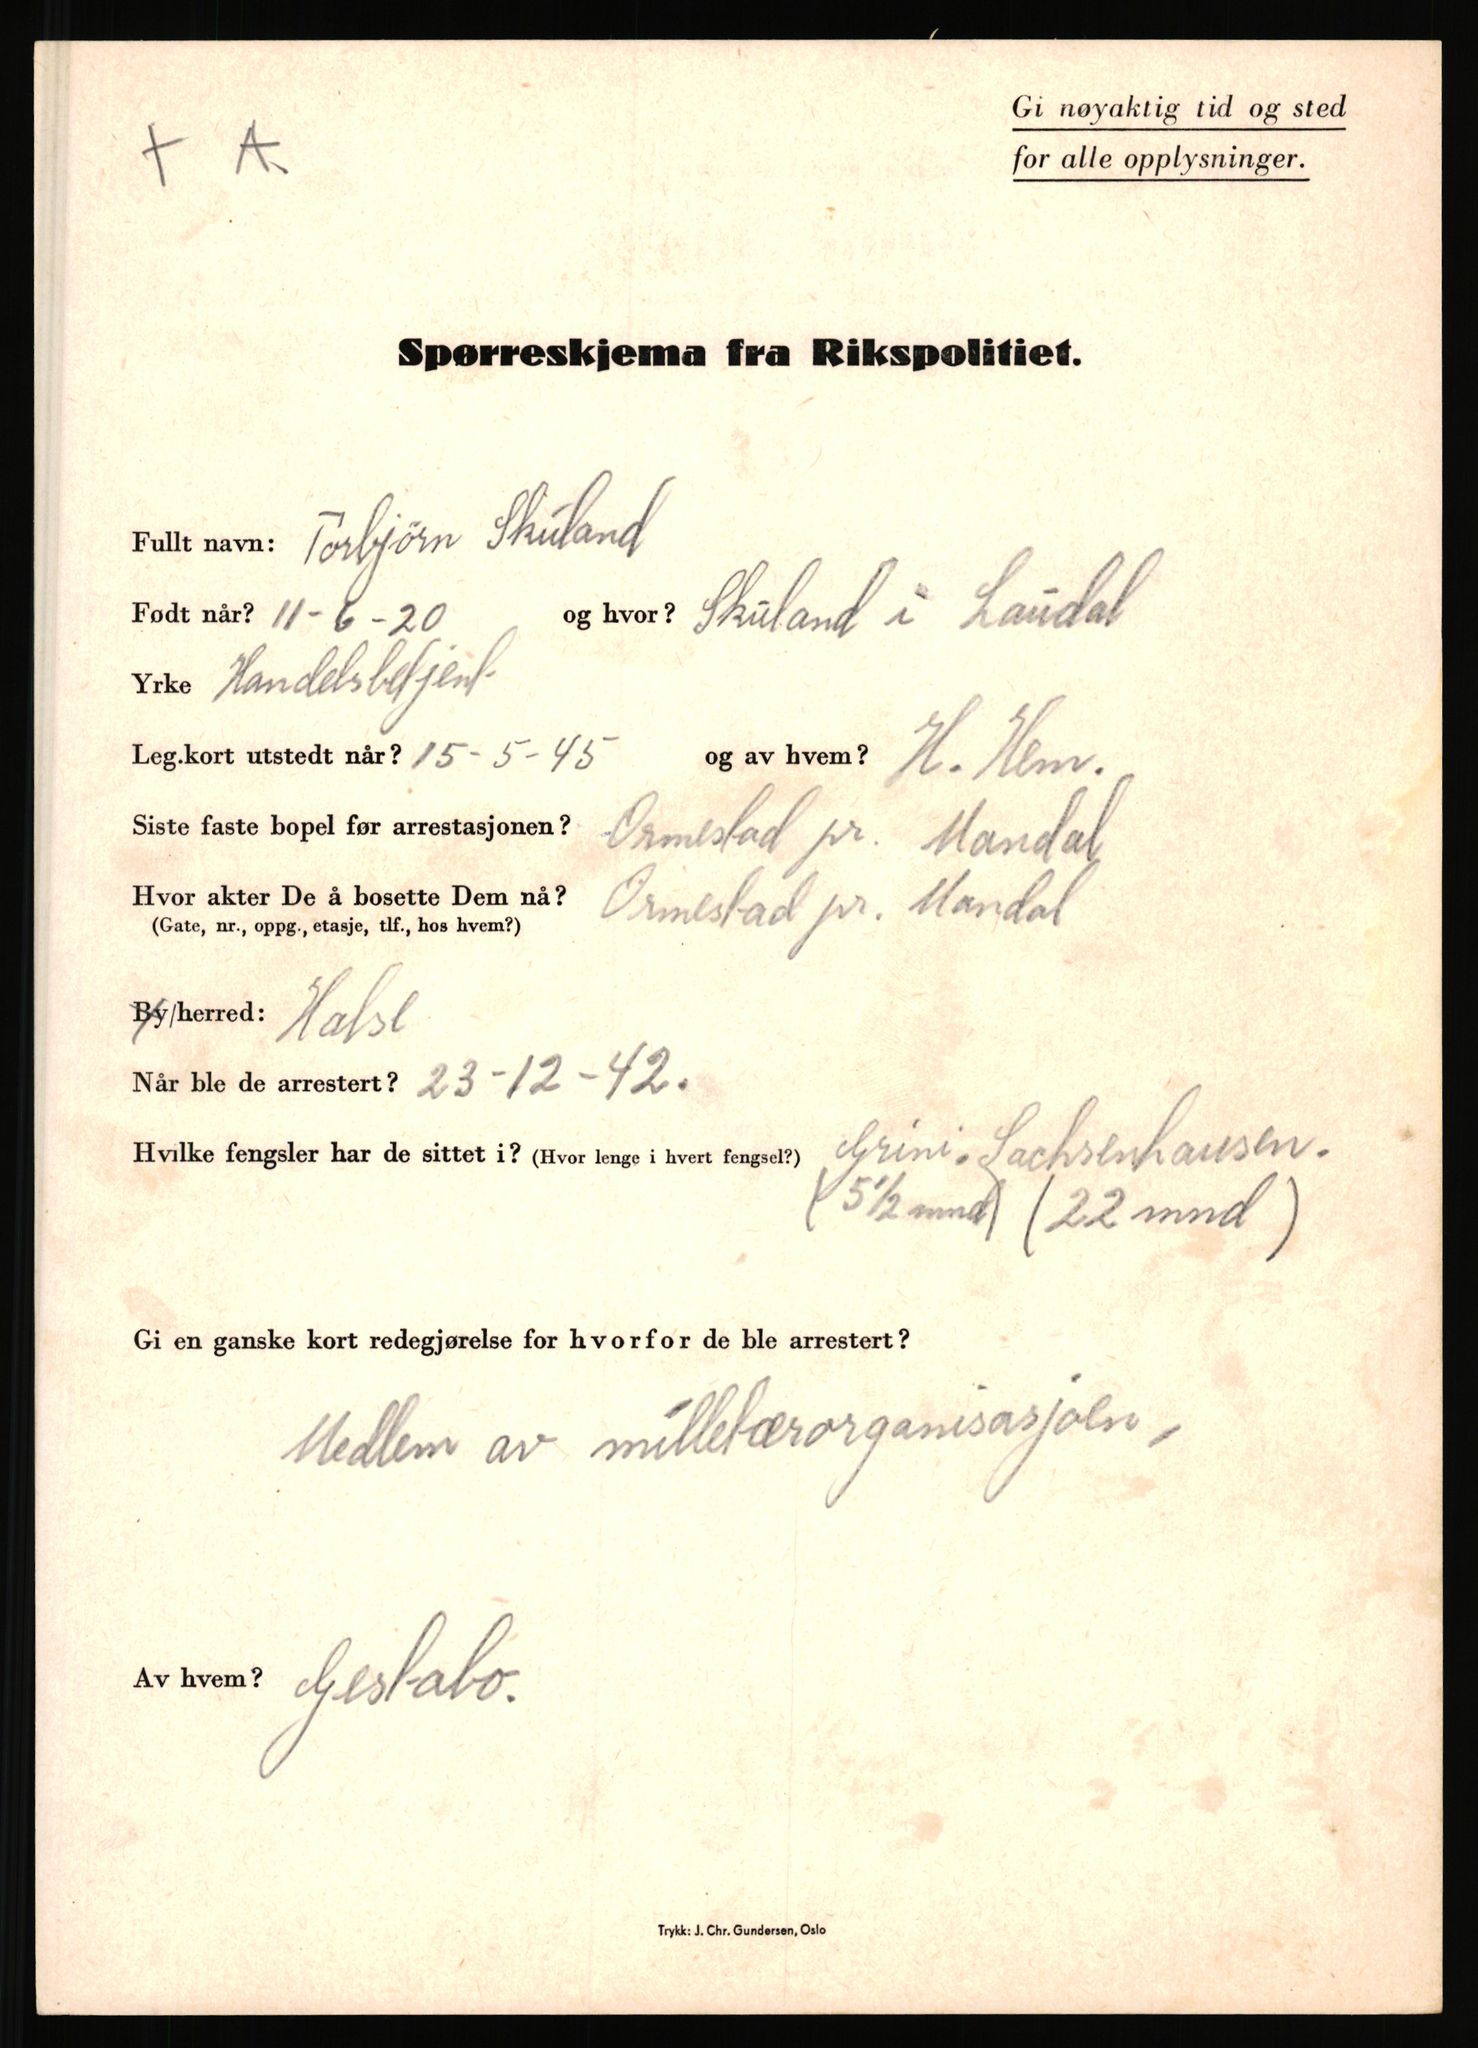 + A.
Gi nøyaktig tid og sted
for alle opplysninger.
Spørreskjema fra Rikspolitiet.
Fullt navn: Torbjörn Skuland
Født når? 11-6-20 og hvor? Skuland i Laudal
Yrke Handelsbetjent
Leg.kort utstedt når? 15-5-45 og av hvem? H. Hem.
Siste faste bopel før arrestasjonen? Ormestad pr. Mandal
Hvor akter De å bosette Dem nå? Ormestad pr. Mandal
(Gate, nr., oppg., etasje, tlf., hos hvem?)
By/herred: Halse
Når ble de arrestert? 23-12-42.
Hvilke fengsler har de sittet i? (Hvor lenge i hvert fengsel?) Grini. Sachsenhausen.
(5 1/2 mnd) (22 mnd)
Gi en ganske kort redegjørelse for hvorfor de ble arrestert?
Medlem av milletærorganisasjoen,
Av hvem? Gestabo.
Trykk: J. Chr. Gundersen, Oslo